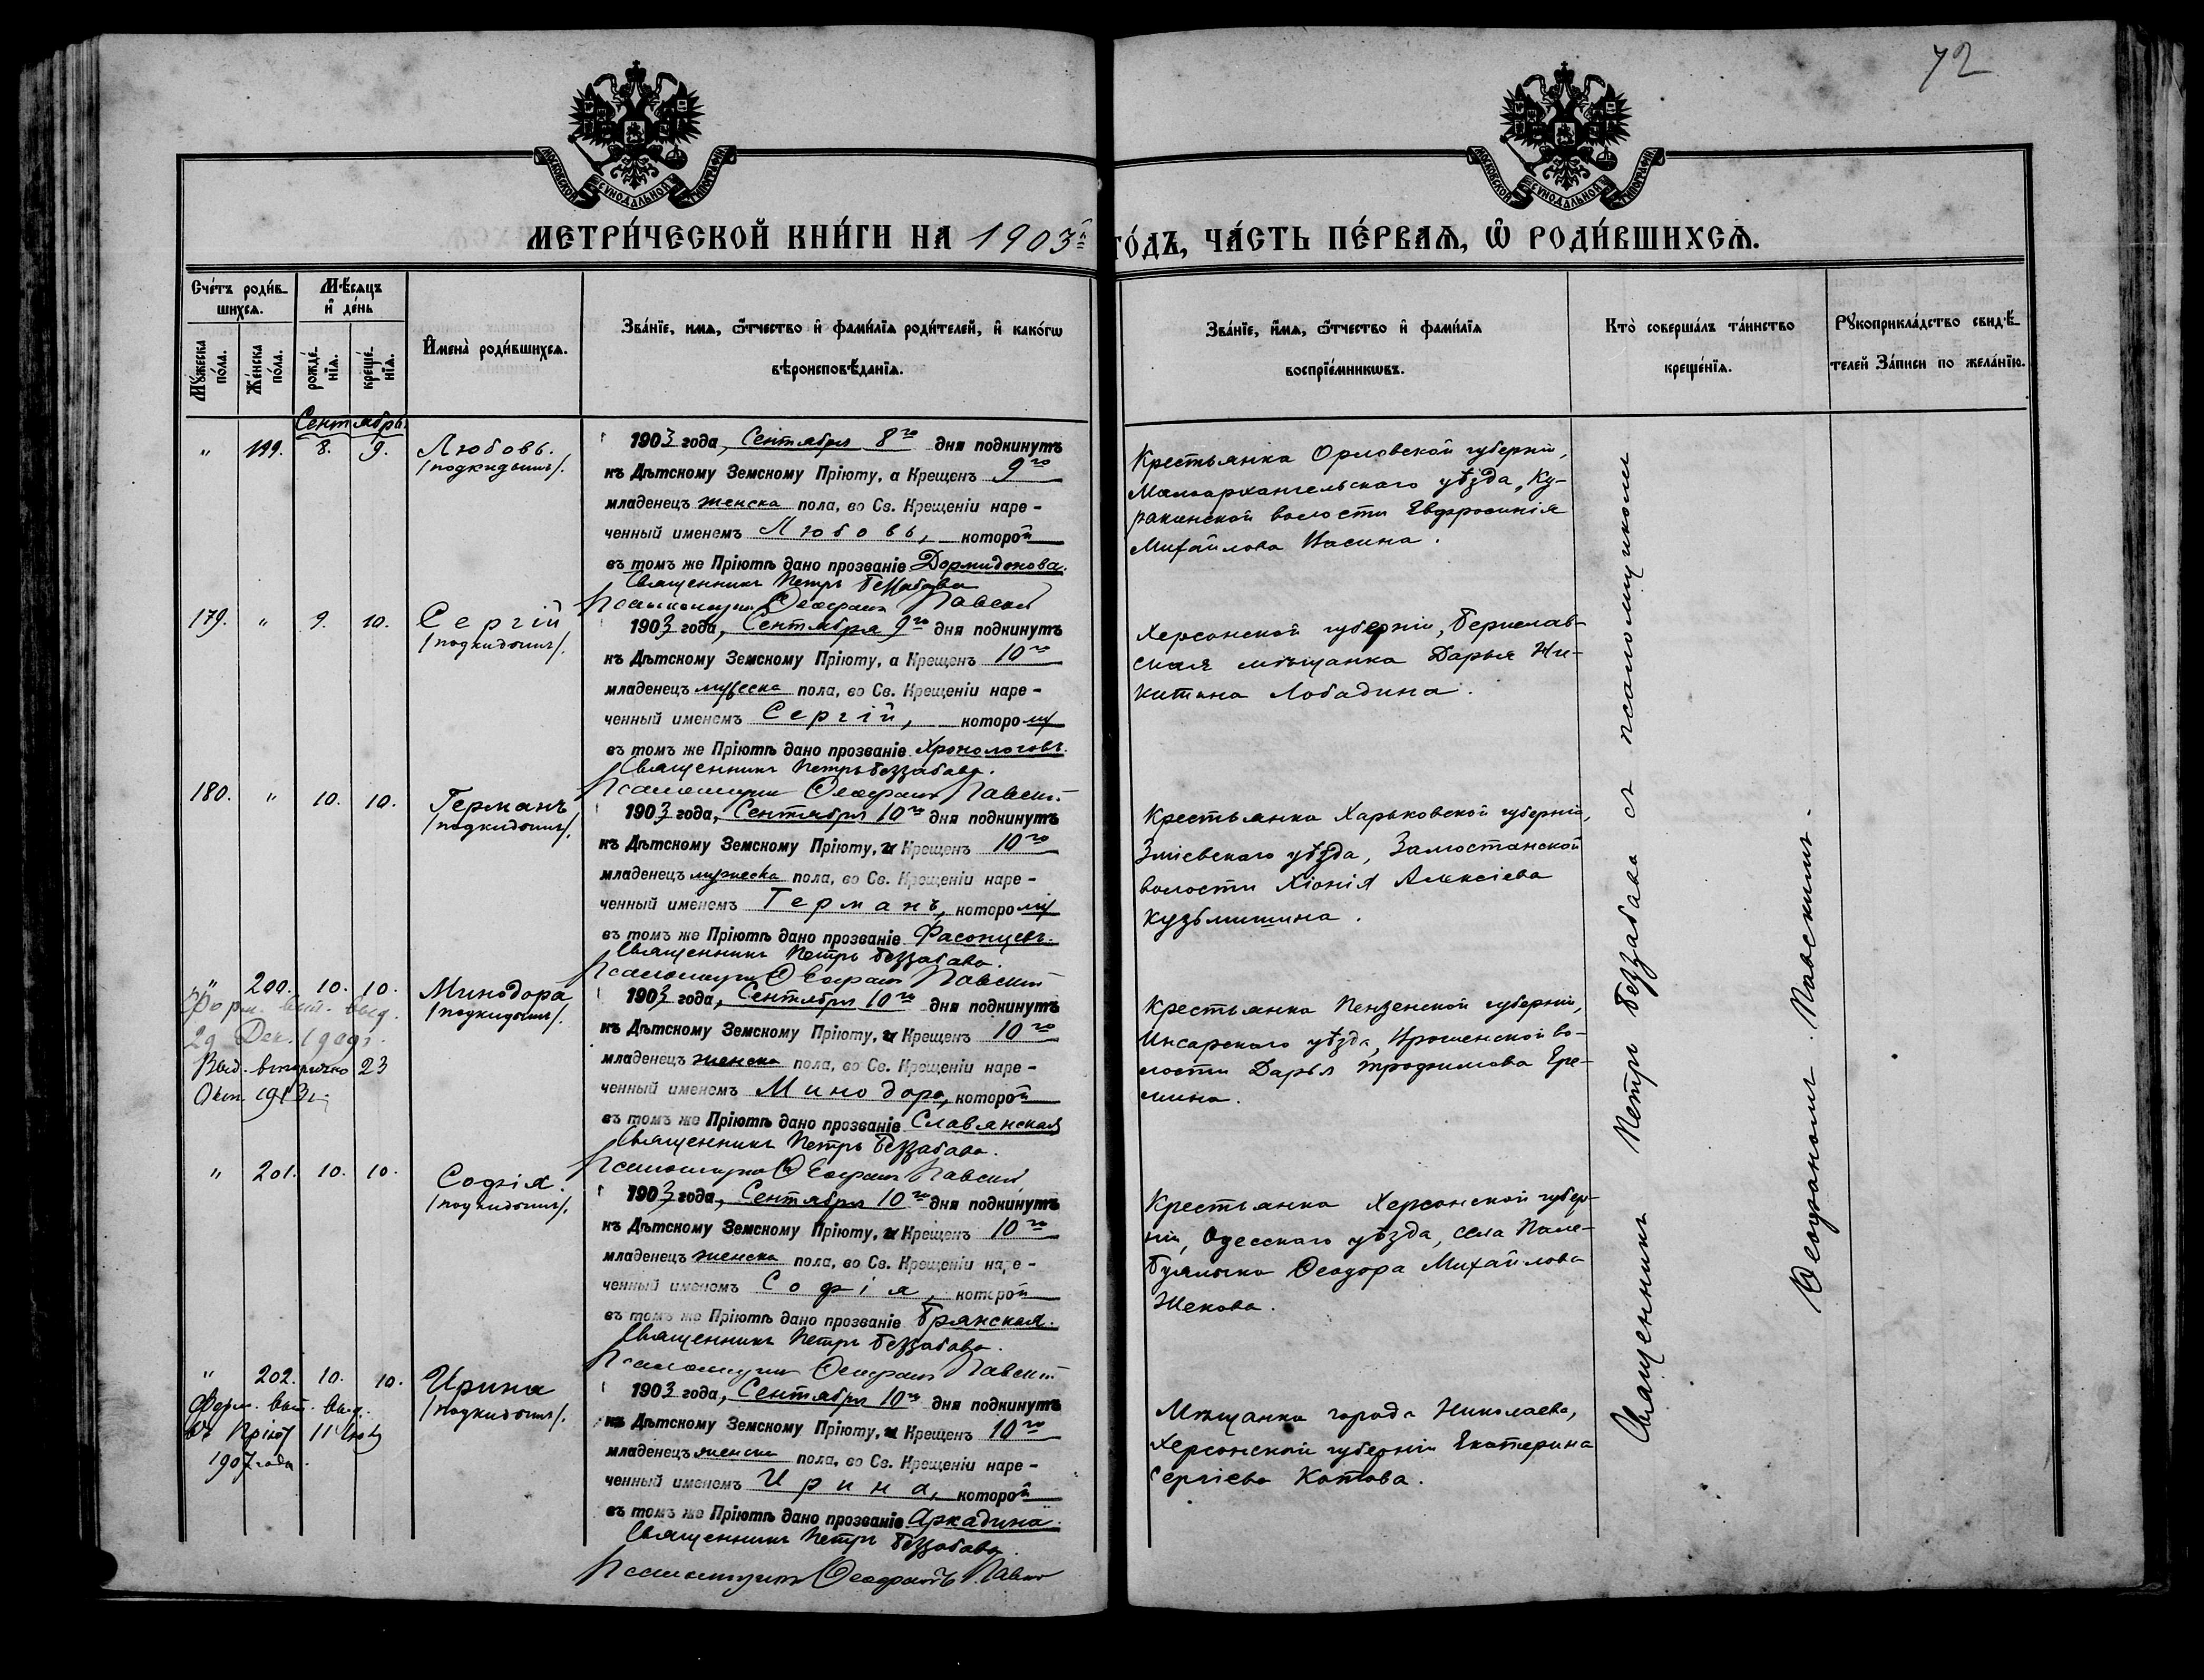 72
МОСКОВСКОЙ СѴНОДАЛЬНОЙ ТИПОГРАФІИ
МОСКОВСКОЙ СѴНОДАЛЬНОЙ ТИПОГРАФІИ
МЕТРИ́ЧЕСКОЙ КНИ́ГИ НА 1903й ГО́ДЪ, ЧА́СТЬ ПЕ́РВАѦ, Ѡ РОДИ́ВШИХСѦ.
Сче́тъ роди́в-
шихсѧ.
Мѣ́сѧцъ
и҆ де́нь
Мꙋ́жеска
по́ла.
Же́нска
по́ла.
рожде́-
нїѧ.
креще́-
нїѧ.
И҆мена̀ роди́вшихсѧ.
Зва́нїе, и҆́мѧ, ѻ҆́тчество и҆ фами́лїѧ роди́телей, и҆ како́гѡ
вѣроисповѣ́данїѧ.
Зва́нїе, и҆́мѧ, ѻ҆́тчество и҆ фами́лїѧ
воспрїе́мникѡвъ.
Кто̀ соверша́лъ та́инство
креще́нїѧ.
Рꙋкоприкла́дство свидѣ́-
телей За́писи по жела́нїю.
Сентябрь
" 199. 8. 9. Любовь.
/подкидышъ/.
1903 года, Сентября 8го дня подкинутъ
къ Дѣтскому Земскому Пріюту, а Крещенъ 9го
младенецъ женска пола, во Св. Крещеніи наре-
ченный именемъ Любовь, которой
въ томъ же Пріютѣ дано прозваніе Дормидонова.
Священникъ Петръ Беззабава
Псаломщикъ Ѳеофанъ Павскій
Крестьянка Орловской губерніи,
Малоархангельскаго уѣзда, Ку-
ракинской волости Евфросинія
Михайлова Васина.
179. " 9. 10. Сергій
/подкидышъ/.
1903 года, Сентября 9го дня подкинутъ
къ Дѣтскому Земскому Пріюту, а Крещенъ 10го
младенецъ мужеска пола, во Св. Крещеніи наре-
ченный именемъ Сергій, которому
въ томъ же Пріютѣ дано прозваніе Хронологовъ.
Священникъ Петръ Беззабава.
Псаломщикъ Ѳеофанъ Павскій
Херсонской губерніи, Берислав-
ская мѣщанка Дарья Ни-
китина Лобадина.
180. " 10. 10. Германъ
/подкидышъ/.
1903 года, Сентября 10го дня подкинутъ
къ Дѣтскому Земскому Пріюту, и Крещенъ 10го
младенецъ мужеска пола, во Св. Крещеніи наре-
ченный именемъ Германъ, которому
въ томъ же Пріютѣ дано прозваніе Фасонцевъ.
Священникъ Петръ Беззабава.
Псаломщикъ Ѳеофанъ Павскій
Крестьянка Харьковской губерніи,
Зміевскаго уѣзда, Замостанской
волости Хіонія Алексіева
Кузьмишина.
" 200. 10. 10. Минодора
/подкидышъ/.
Форм. вып. выд.
29 Дек. 1909 г.
Выд. вторично 23
Окт. 1913 г.
1903 года, Сентября 10го дня подкинутъ
къ Дѣтскому Земскому Пріюту, и Крещенъ 10го
младенецъ женска пола, во Св. Крещеніи наре-
ченный именемъ Минодора, которой
въ томъ же Пріютѣ дано прозваніе Славянская
Священникъ Петръ Беззабава.
Псаломщикъ Ѳеофанъ Павскій
Крестьянка Пензенской губерніи,
Инсарскаго уѣзда, во-
лости Дарья Трофимова Ере-
мина.
" 201. 10. 10. Софія.
/подкидышъ/.
1903 года, Сентября 10го дня подкинутъ
къ Дѣтскому Земскому Пріюту, и Крещенъ 10го
младенецъ женска пола, во Св. Крещеніи наре-
ченный именемъ Софія, которой
въ томъ же Пріютѣ дано прозваніе Брянская.
Священникъ Петръ Беззабава.
Псаломщикъ Ѳеофанъ Павскій
Крестьянка Херсонской губер-
ніи, Одесскаго уѣзда, села
Ѳеодора Михайлова
Жекова.
" 202. 10. 10. Ирина
/подкидышъ/.
Форм. вып. выд.
въ Пріютъ 11
1907 года.
1903 года, Сентября 10го дня подкинутъ
къ Дѣтскому Земскому Пріюту, и Крещенъ 10го
младенецъ женска пола, во Св. Крещеніи наре-
ченный именемъ Ирина, которой
въ томъ же Пріютѣ дано прозваніе Аркадина.
Священникъ Петръ Беззабава.
Псаломщикъ Ѳеофанъ Павскій
Мѣщанка города Николаева,
Херсонской губерніи Екатерина
Сергіева Котова.
Священникъ Петръ Беззабава съ псаломщикомъ
Ѳеофаномъ Павскимъ.